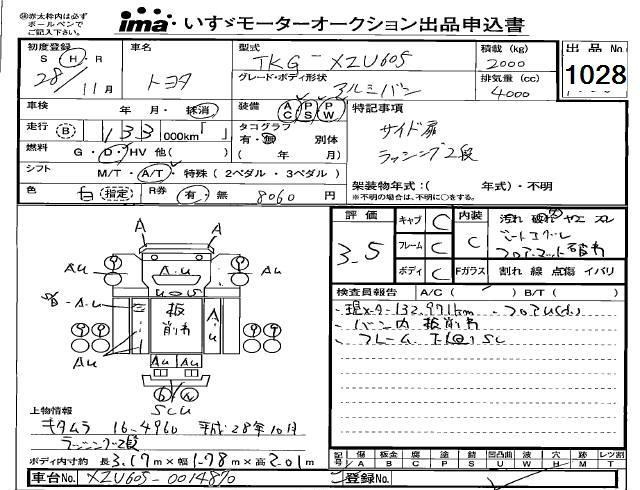 ㊟赤太枠内は必ず
ボールペンで
ご記入下さい。
ima いすゞモーターオークション出品申込書
初度登録 S・H・R 28/11月
車名 トヨタ
型式 TKG-XZU605
グレード・ボディ形状 アルミバン
積載 (kg) 2000
排気量 (cc) 4000
出品No 1028
車検 年・月・抹消
装備 AC PS PW
特記事項
サイド扉
ラッシング2段
走行 B 133 000km「 」
タコグラフ 有・無 別体 ( 年 月)
燃料 G・D・HV 他( )
シフト M/T・A/T・特殊 (2ペダル・3ペダル)
架装物年式:( 年式)・不明
※不明の場合は、不明に○をする。
色 白 指定 R券 有・無 8060 円
評価 3.5
キャブ C
フレーム C
ボディ C
内装 C
Fガラス
汚れ 破れ ヤケ スレ
フロアマット
割れ 線 点傷 イバリ
検査員報告 A/C( ) B/T( )
現メータ132,971km
バン内 板削れ
フレーム
A A
Au Au
A.u
板
削れ
A.u
Au Au
Au Au
SCU
上物情報
キタムラ 16-4960 平成28年10月
ラッシング2段
ボディ内寸約 長3.17m×幅1.78m×高2.01m
車台No. XZU605-0014870
登録No.
記号 傷 板金 腐 塗 錆 凹凸曲 波 穴 跡 レツ割
A B C P S U W H M T